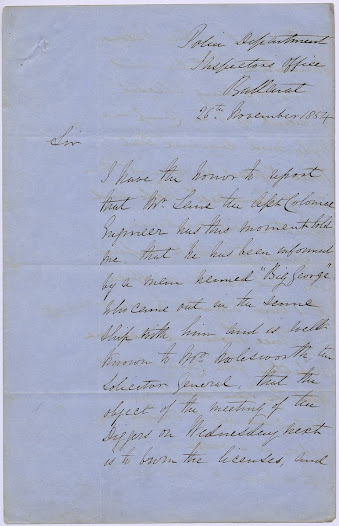 Police Department
Inspectors Office
Ballarat
26th November 1854
Sir
I have the honor to report
that Mr. Lane the Asst Colonial
Engineer has this moment told
me that he has been informed
by a man named "Big George"
who came out in the same
ship with him and is well
known to Mr. Molesworth the
Solicitor General, that the
object of the meeting of the
Diggers on Wednesday next
is to burn the licenses, and